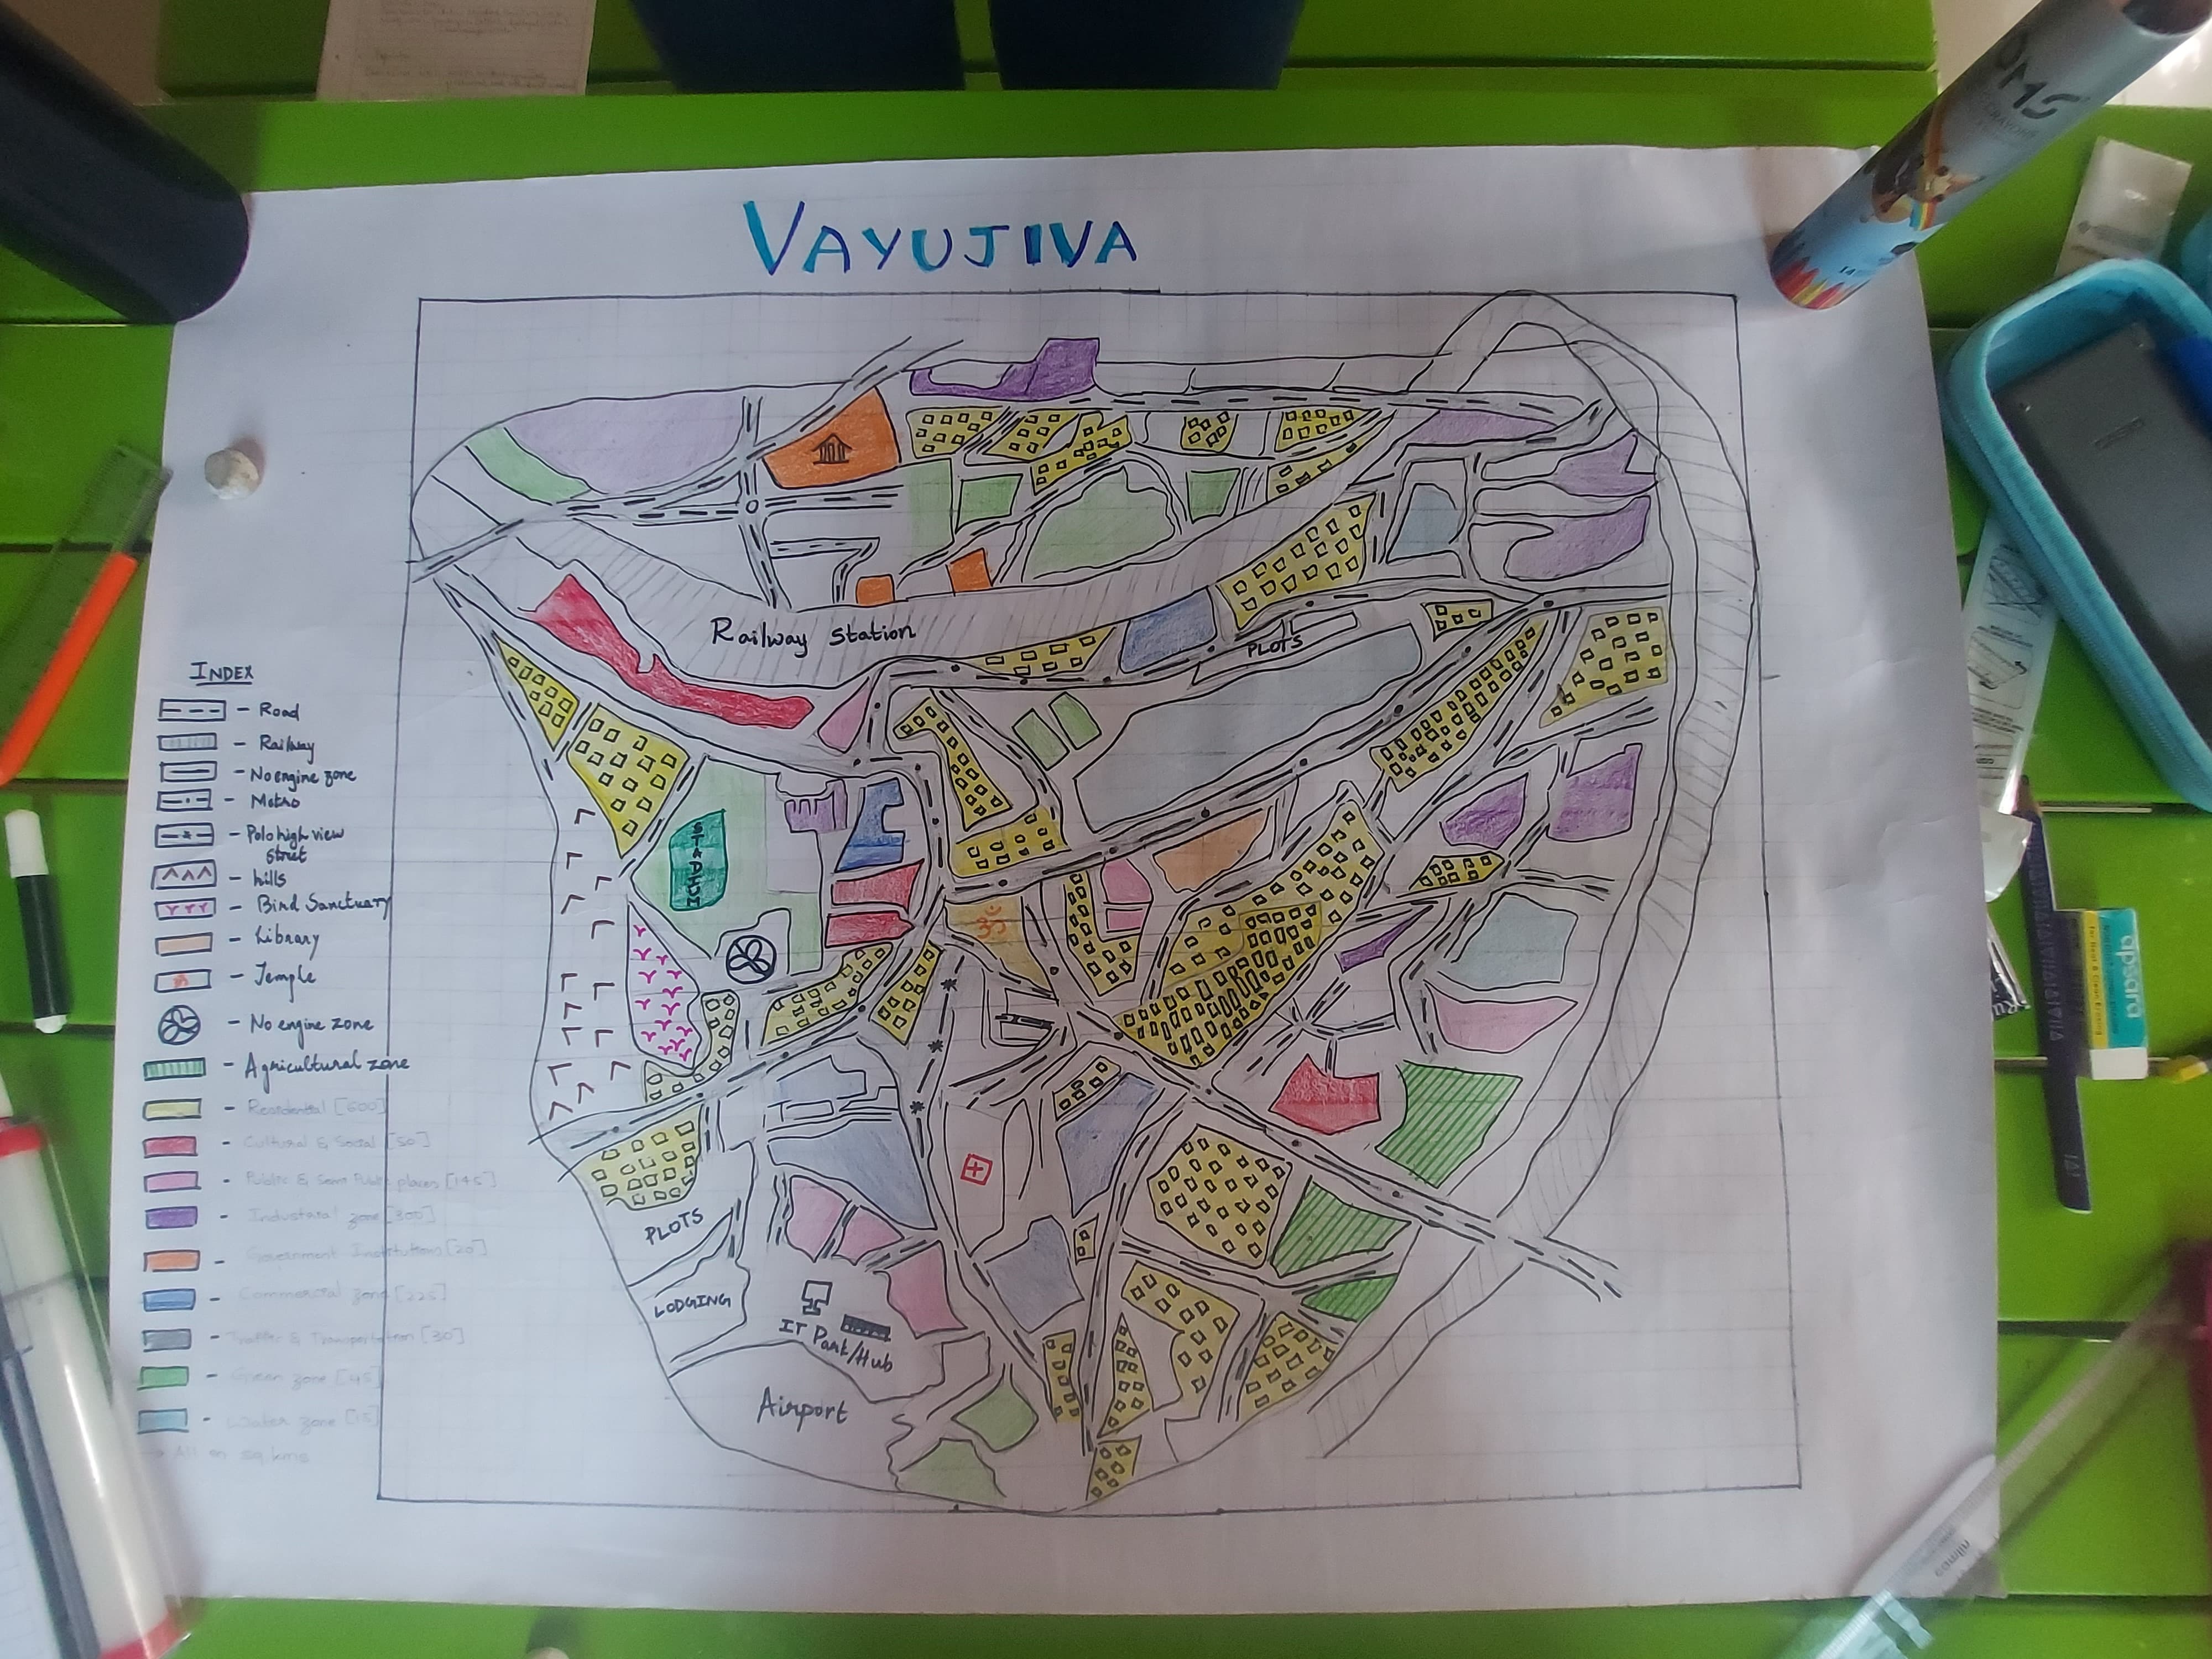 VAYUJIVA
Railway Station
PLOTS
INDEX
- Road
- Railway
- No engine zone
- Metro
- Polo high view
Street
- hills
- Bird Sanctuary
- Library
- Temple
- No engine zone
- Agricultural zone
- Residential [600]
- Cultural & Social [50]
- Public & Semi Public places [145]
- Industrial zone [300]
- Government Institutions [20]
- Commercial zone [225]
- Traffic & Transportation [30]
- Green zone [45]
- Water zone [15]
→ All in sq.kms
ॐ
PLOTS
LODGING
IT Park/Hub
Airport
DMS
apsara